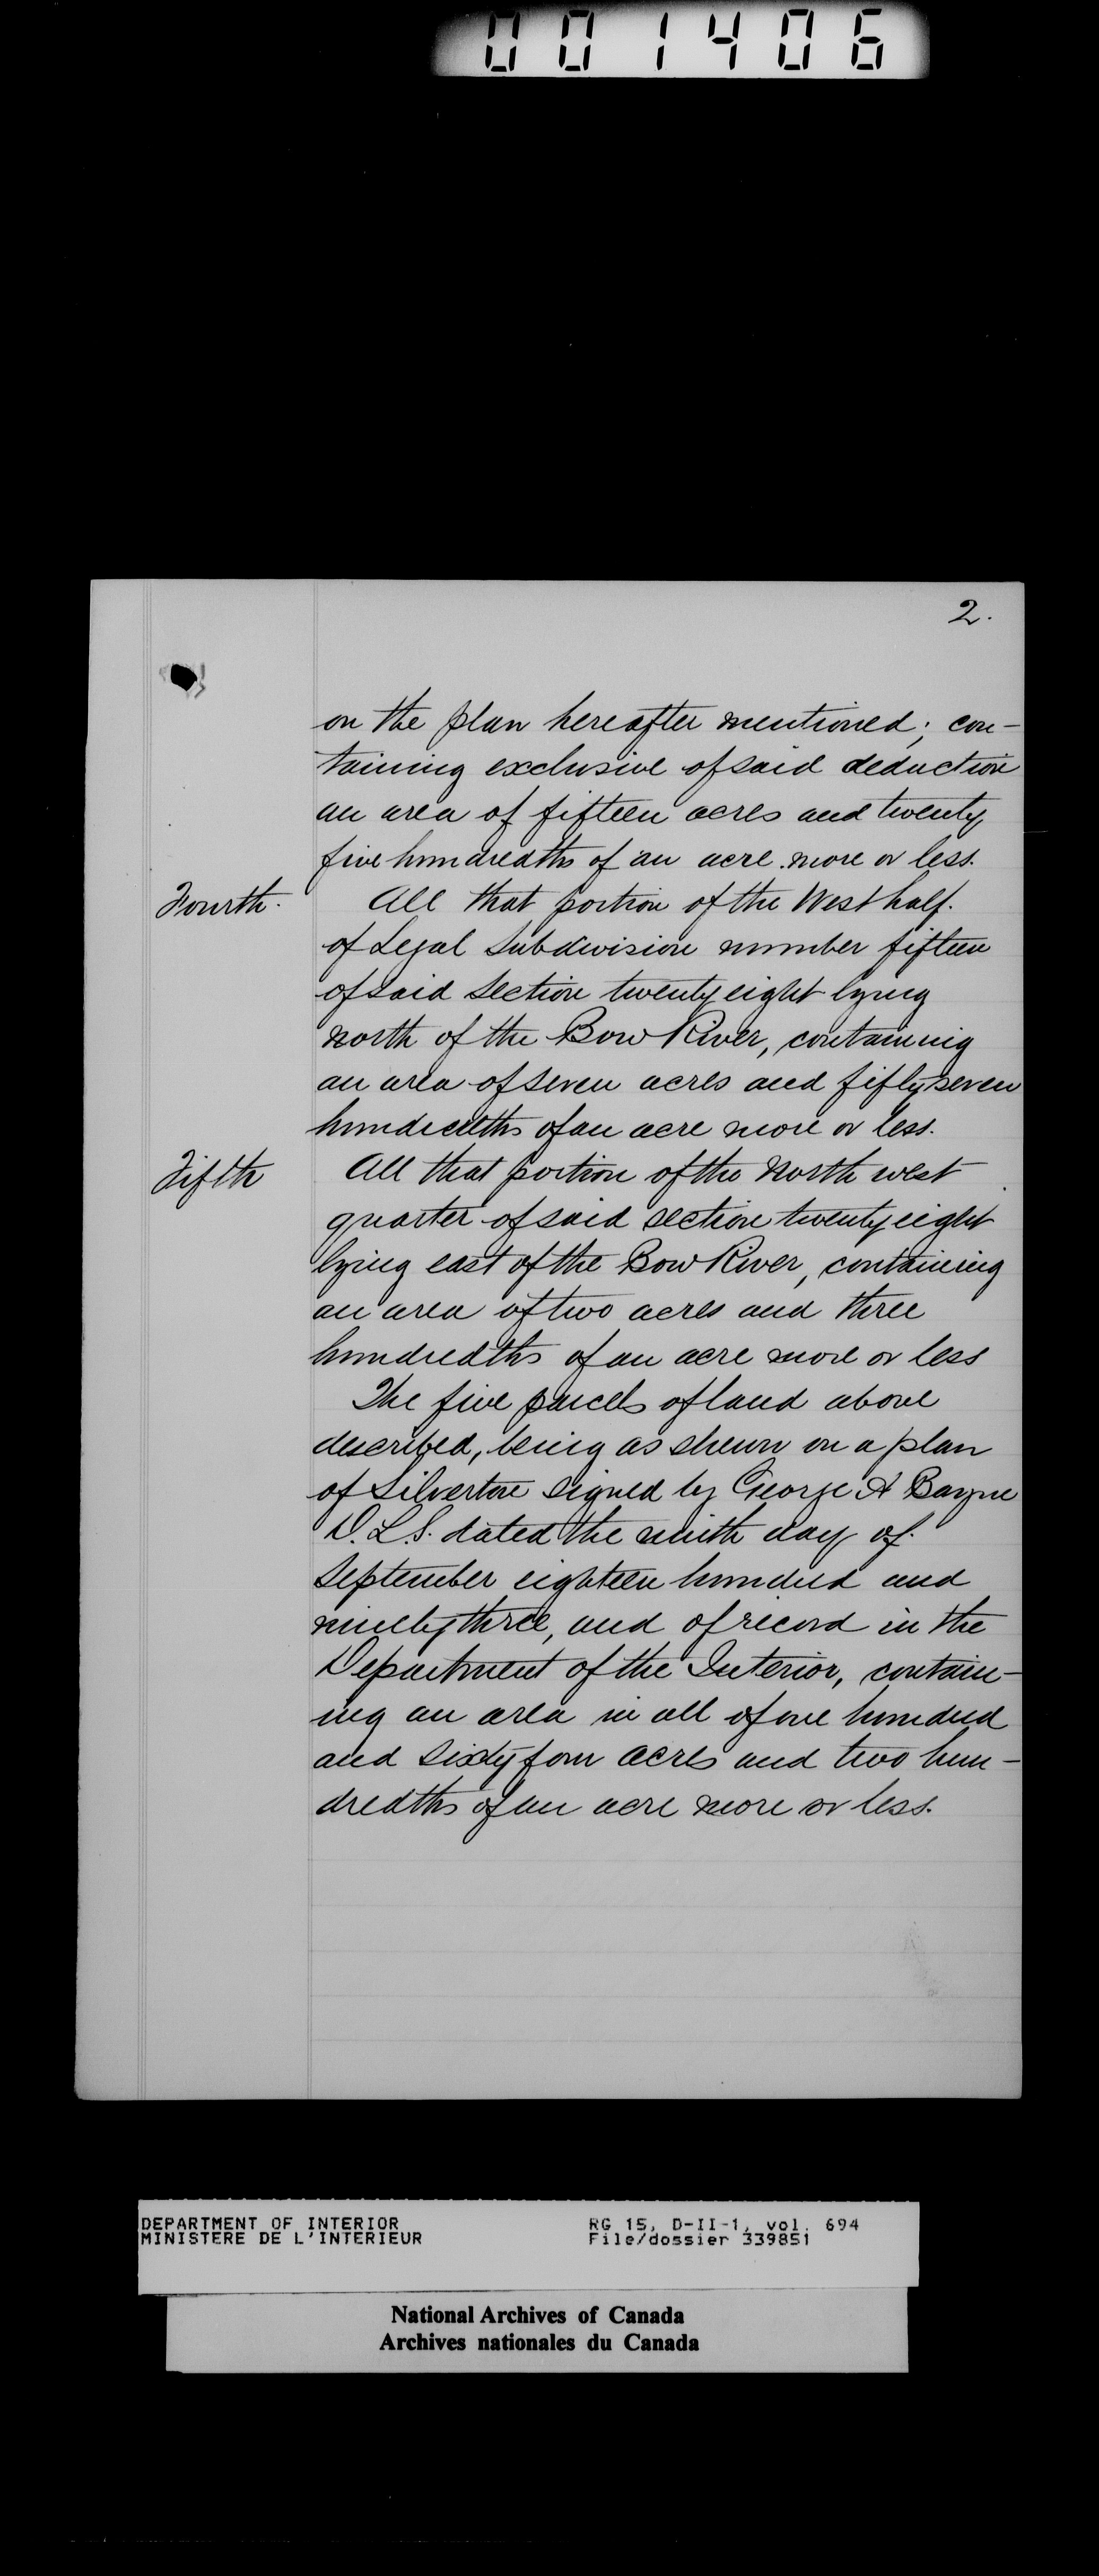 001406
2.
on the plan hereafter mentioned; con-
taining exclusive of said deduction
an area of fifteen acres and twenty
five hundredths of an acre more or less.
Fourth. All that portion of the West half
of Legal Subdivision number fifteen
of said Section twenty eight lying
north of the Bow River, containing
an area of seven acres and fifty seven
hundredths of an acre more or less.
Fifth All that portion of the North west
quarter of said section twenty eight
lying east of the Bow River, containing
an area of two acres and three
hundredths of an acre more or less
The five parcels of land above
described, being as shewn on a plan
of Silvertone signed by George A Bayne
D.L.S. dated the ninth day of
September eighteen hundred and
ninety three, and of record in the
Department of the Interior, contain-
ing an area in all of one hundred
and sixty four acres and two hun-
dredths of an acre more or less.
DEPARTMENT OF INTERIOR RG 15, D-II-1, vol. 694
MINISTERE DE L'INTERIEUR File/dossier 339851
National Archives of Canada
Archives nationales du Canada